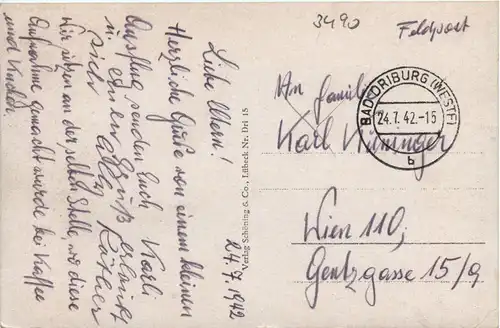 Liebe Eltern!
24.7.1942
Herzliche Grüße von einem kleinen
Ausflug senden Euch Karli
u.
einen Gruß erlaubt
sich allen Käthe
Wir sitzen an der selben Stelle, wo diese
Aufnahme gemacht wurde bei Kaffee
und Kuchen.
Verlag Schöning & Co., Lübeck Nr. Drl 15
3490
Feldpost
BAD DRIBURG (WESTF)
24.7.42.-15
b
An Familie
Karl
Wien 110,
Gentzgasse 15/9